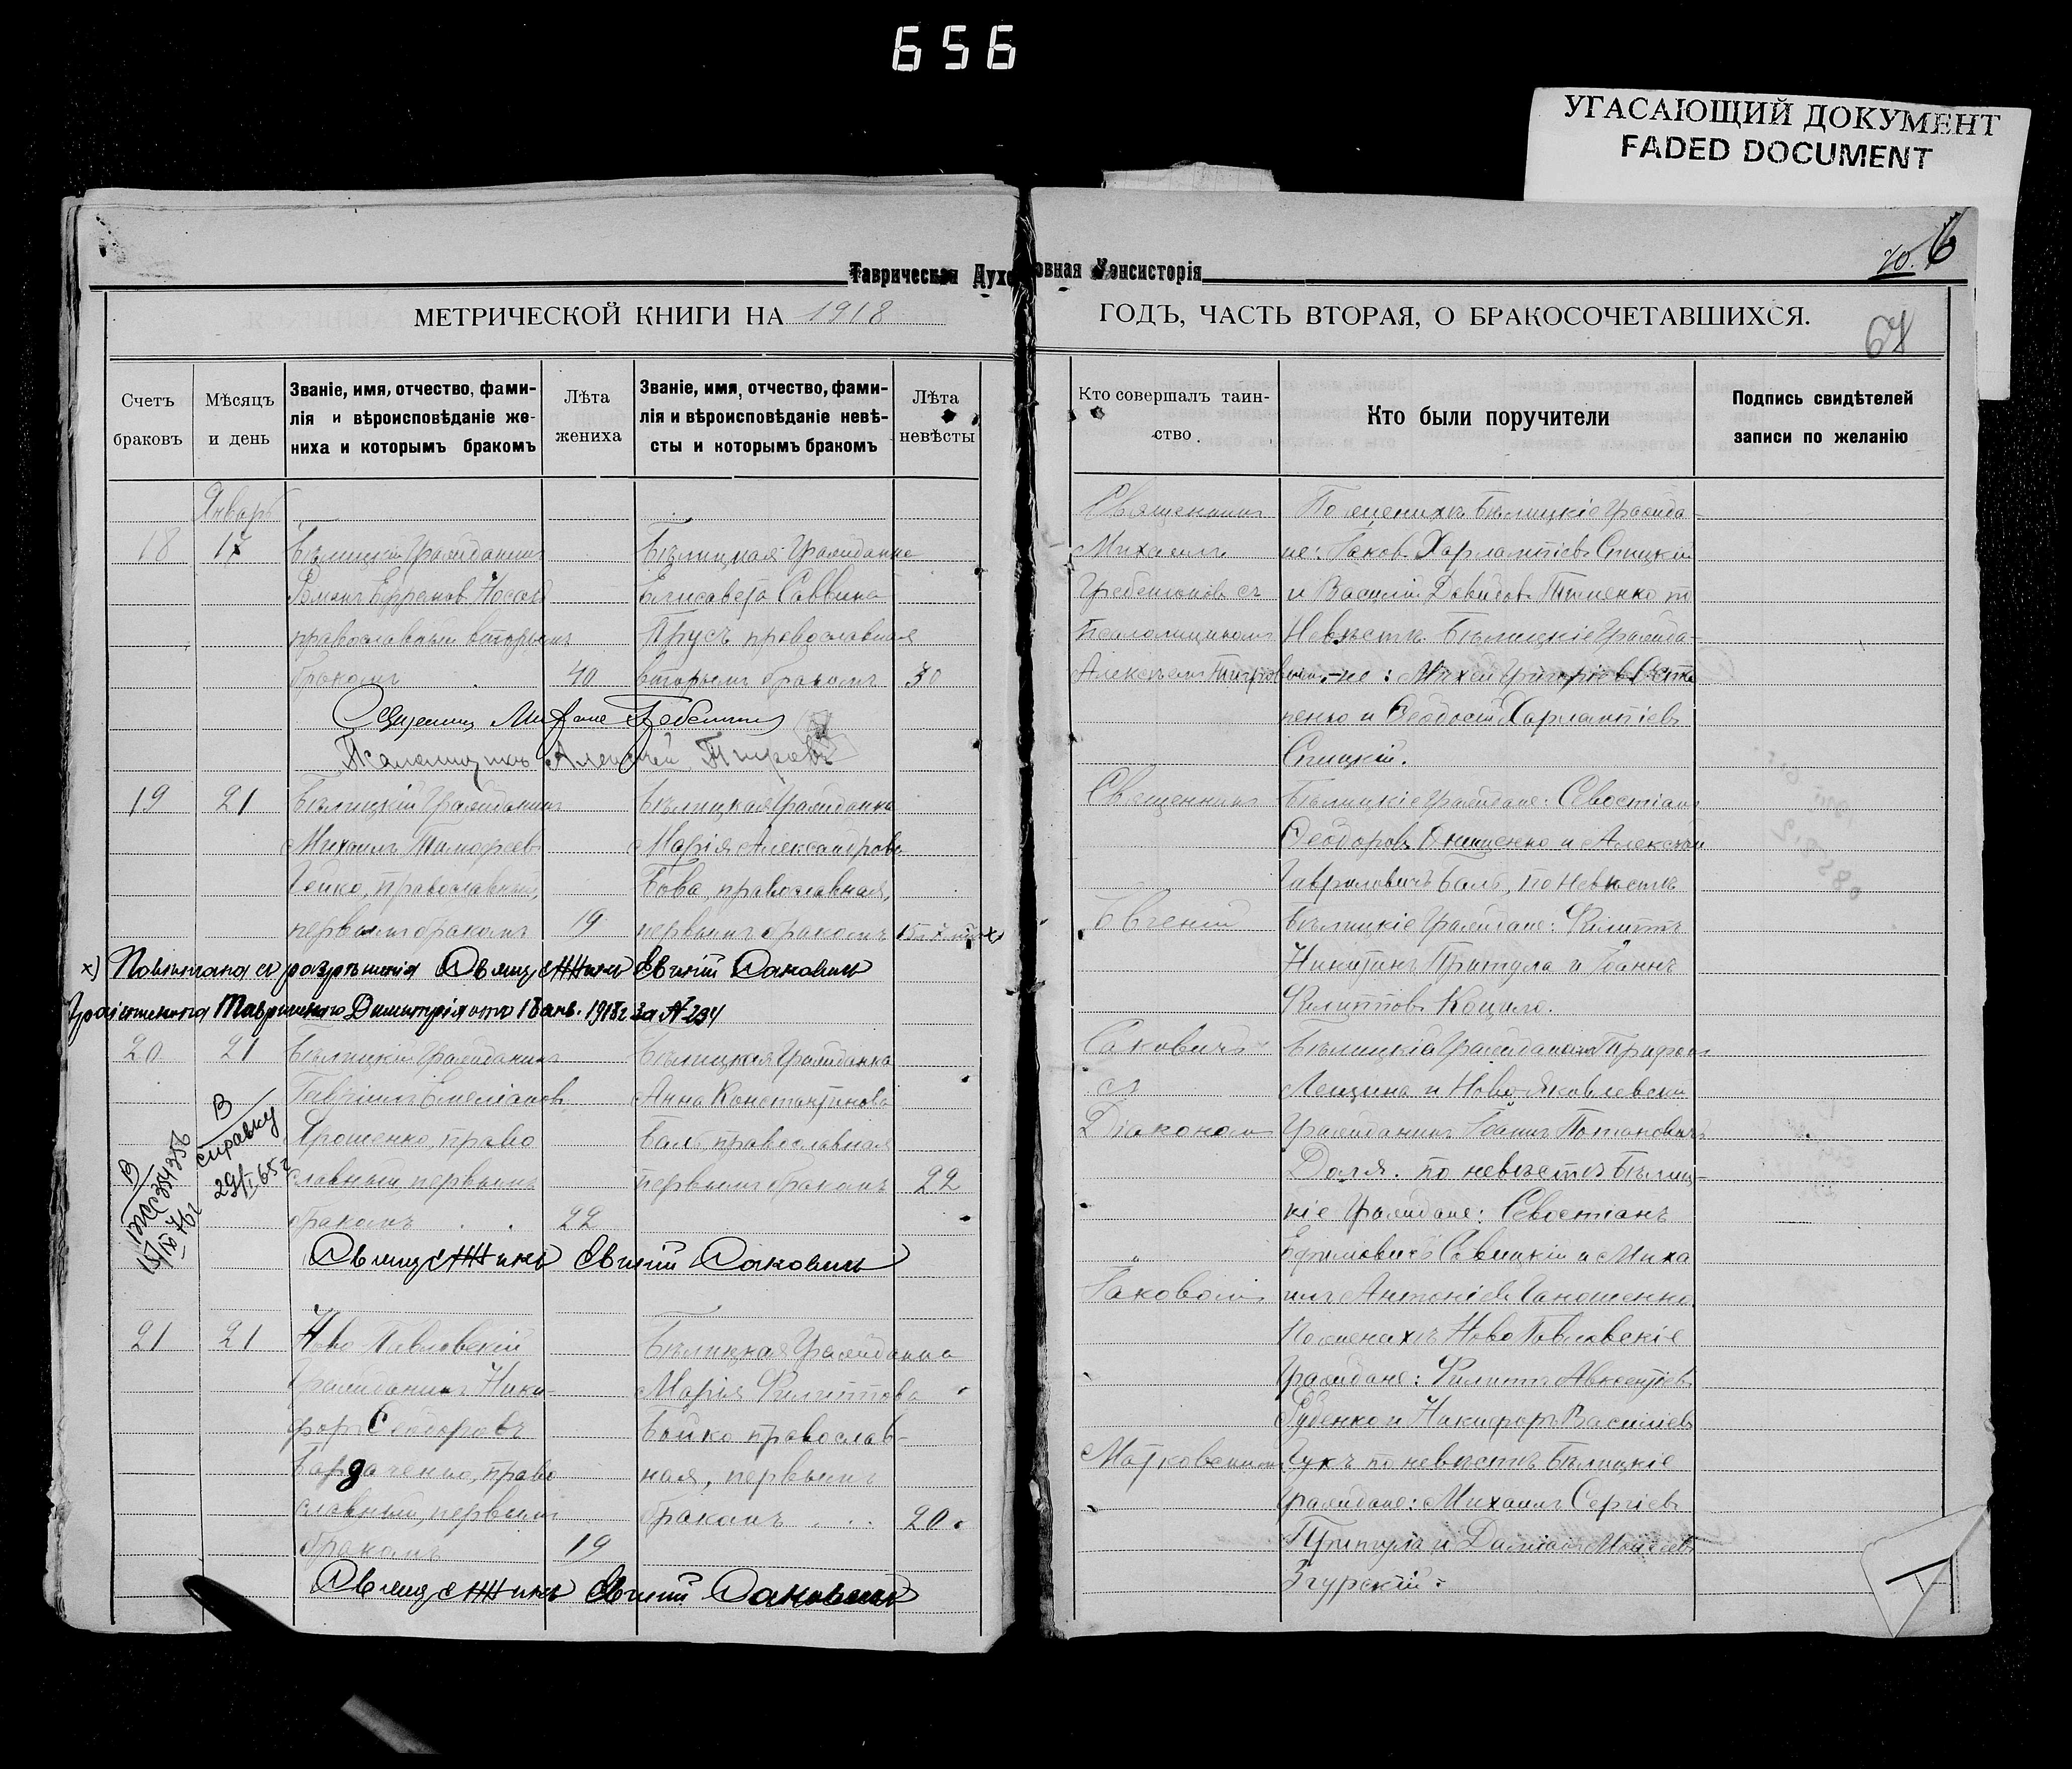 656
УГАСАЮЩИЙ ДОКУМЕНТ
FADED DOCUMENT
6
Таврическая Духовная Консисторія
МЕТРИЧЕСКОЙ КНИГИ НА 1918
ГОДЪ, ЧАСТЬ ВТОРАЯ, О БРАКОСОЧЕТАВШИХСЯ.
Счетъ браковъ
Мѣсяцъ и день
Званіе, имя, отчество, фами-
лія и вѣроисповѣданіе же-
ниха и которымъ бракомъ
Лѣта жениха
Званіе, имя, отчество, фами-
лія и вѣроисповѣданіе невѣ-
сты и которымъ бракомъ
Лѣта невѣсты
Кто совершалъ таин-
ство
Кто были поручители
Подпись свидѣтелей
записи по желанію
Январь
18 17 Бѣлицкій Гражданинъ
Романъ Носаль
православный вторымъ
бракомъ 40
Бѣлицкая Гражданка
Елисавета Саввина
Трусъ православная
вторымъ бракомъ 30
Священникъ
Михаилъ
Гребенюковъ съ
Псаломщикомъ
По женихѣ Бѣлицкіе Гражда-
не: Іаковъ Харлампіевъ Спицкій
и Василій Давидовъ Тименко по
Невѣстѣ Бѣлицкіе Гражда-
не: Михей Григоріевъ Остапенко
и Ѳеодосій Харлампіевъ
Спицкій.
Псаломщикъ Алексѣй
19 21 Бѣлицкій Гражданинъ
Михаилъ Тимофеевъ
православный,
первымъ бракомъ 19
Бѣлицкая Гражданка
Марія Александрова
Бова, православная,
первымъ бракомъ 15
Священникъ
Евгеній
Бѣлицкіе Граждане: Севостіанъ
Ѳеодоровъ Онищенко и Алексѣй
Гавриловичъ Баль, по Невѣстѣ
Бѣлицкіе Граждане: Филиппъ
Никитинъ Притула и Іоаннъ
Филипповъ Коцило.
х) Повѣнчана съ разрѣшенія Священникъ Евгеній Саковичъ
Таврическаго Димитрія отъ янв. 1918 г за № 294
20 21 Бѣлицкій Гражданинъ
Гавріилъ Емеліановъ
Ярошенко, право
славный, первымъ
бракомъ 22
Бѣлицкая Гражданка
Анна Константинова
Баль, православная
первымъ бракомъ 22
Саковичъ
съ
Діакономъ
Бѣлицкій Гражданинъ Трифонъ
Лещина и Ново-Яковлевскій
Гражданинъ Іоаннъ Потаповичъ
Доля. по невѣстѣ Бѣлиц-
кіе Граждане: Севостіанъ
Ефимовичъ Савицкій и Миха
илъ Антоніевъ Ганошенко
В справку
Священникъ Евгеній Саковичъ
21 21 Ново-Павловскій
Гражданинъ Ники-
форъ Ѳеодоровъ
Бардаченко, право
славный, первымъ
бракомъ 19
Бѣлицкая Гражданка
Марія Филиппова
Бойко православ-
ная, первымъ
бракомъ 20
Іаковомъ
По женихѣ Ново Павловскіе
Граждане: Филиппъ Авксентіевъ
Руденко и Никифоръ Василіевъ
Гукъ по невѣстѣ Бѣлицкіе
Граждане: Михаилъ Сергіевъ
Притула и Даміанъ Моисеевъ
Згурскій.
Священникъ Евгеній Саковичъ